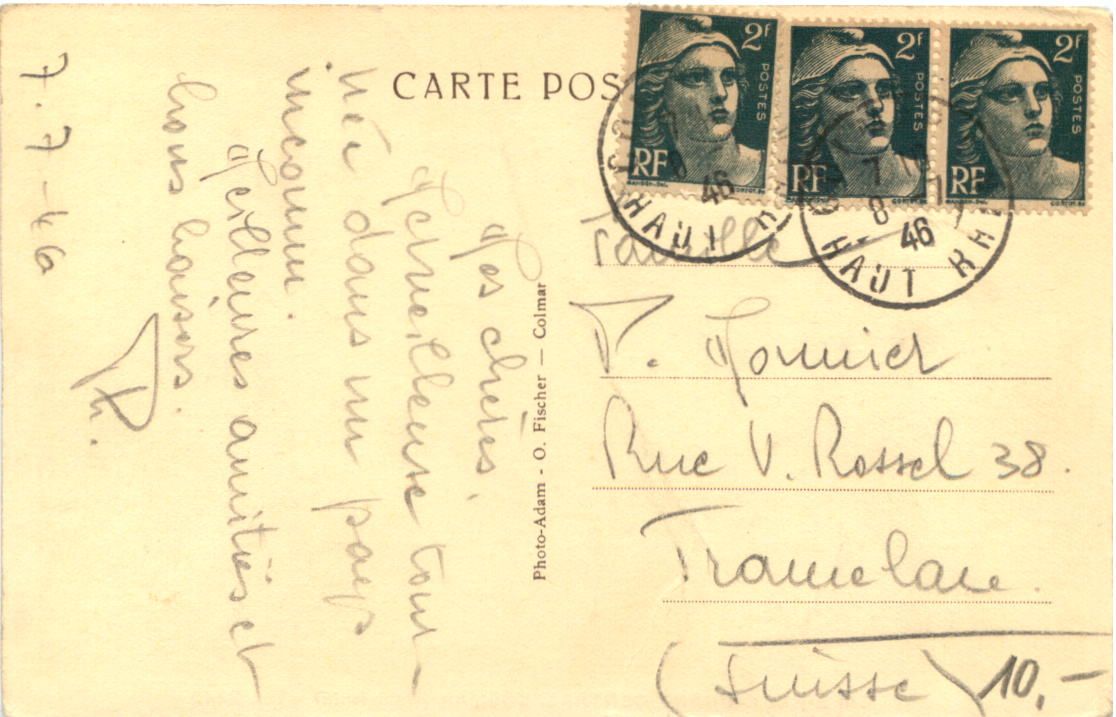 CARTE POS
2F
POSTES
RF
2F
POSTES
RF
2F
POSTES
RF
7
8
46
HAUT RHIN
46
HAUT RH
Mes chères,
Merveilleuse tour-
née dans un pays
inconnu.
Meilleures amitiés et
bons baisers.
Th.
7.7-46
Photo-Adam - O. Fischer — Colmar
Famille
P. Monnier
Rue V. Rossel 38.
Tramelan.
(Suisse)
10.-